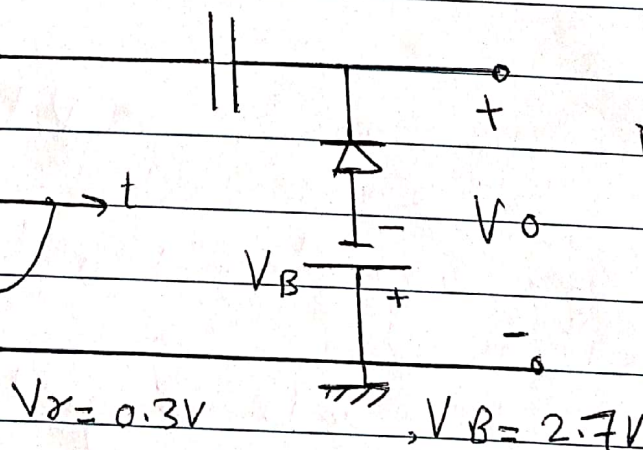 +
t
-
Vo
VB
+
-
Vγ = 0.3V , VB = 2.7V